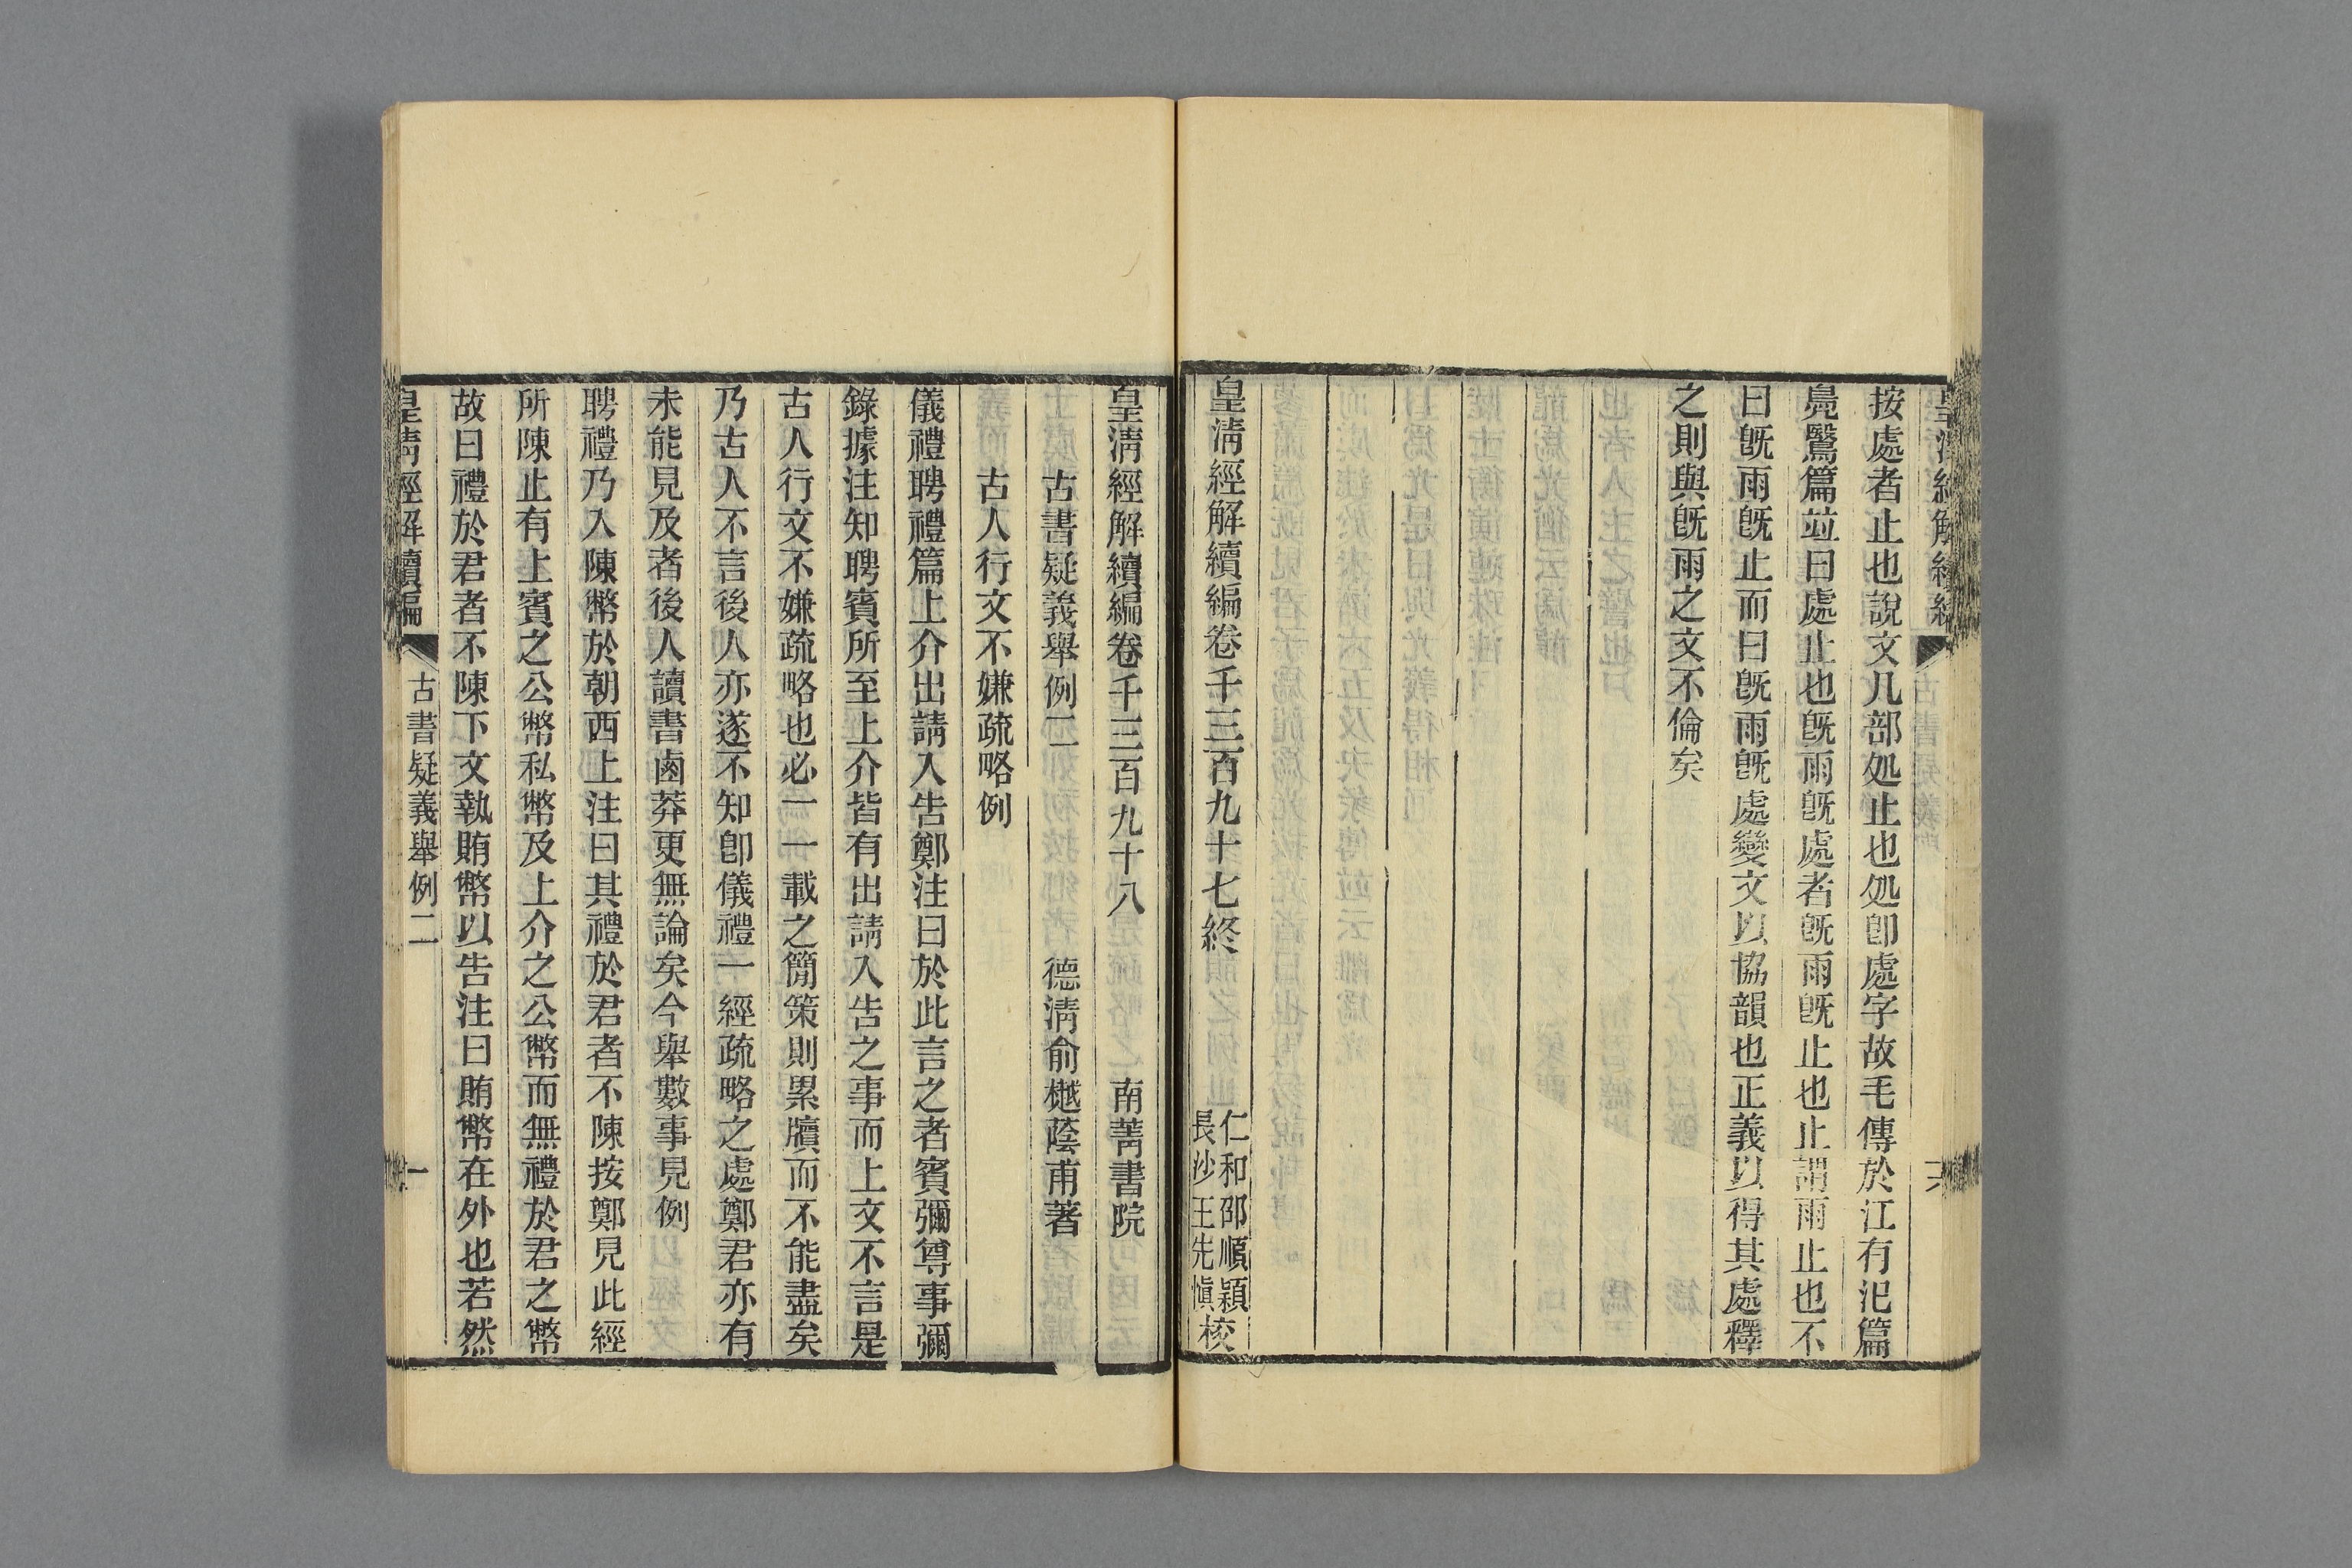 按處者止也說文几部処止也処卽處字故毛傳於江有汜篇
鳧鷖篇竝曰處止也旣雨旣處者旣雨旣止也止謂雨止也不
曰旣雨旣止而曰旣雨旣處變文以協韻也正義以得其處釋
之則與旣雨之文不倫矣
皇淸經解續編卷千三百九十七終
仁和邵順穎
長沙王先愼校
皇淸經解續編卷千三百九十八
南菁書院
古書疑義舉例二
德淸俞樾蔭甫著
古人行文不嫌疏略例
儀禮聘禮篇上介出請入告鄭注曰於此言之者賓彌尊事彌
錄據注知聘賓所至上介皆有出請入告之事而上文不言是
古人行文不嫌疏略也必一一載之簡策則累牘而不能盡矣
乃古人不言後人亦遂不知卽儀禮一經疏略之處鄭君亦有
未能見及者後人讀書鹵莽更無論矣今舉數事見例
聘禮乃入陳幣於朝西上注曰其禮於君者不陳按鄭見此經
所陳止有上賓之公幣私幣及上介之公幣而無禮於君之幣
故曰禮於君者不陳下文執賄幣以告注曰賄幣在外也若然
皇淸經解續編
古書疑義舉例二
一